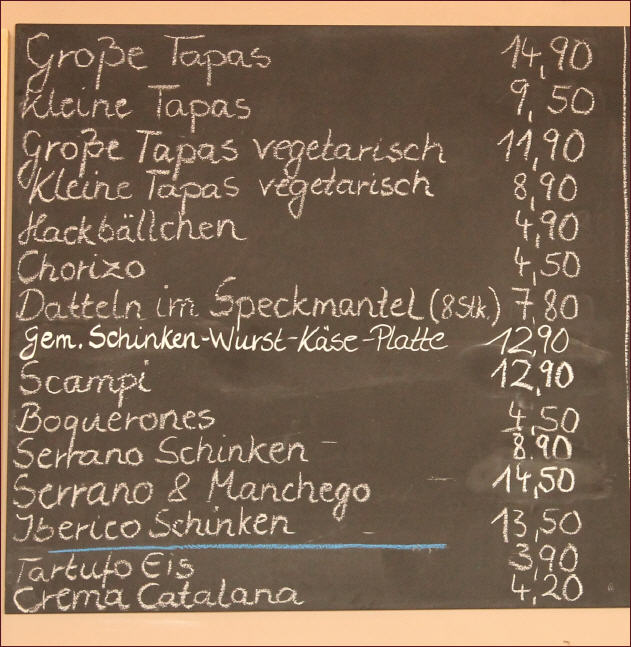 Große Tapas 14,90
Kleine Tapas 9,50
Große Tapas vegetarisch 11,90
Kleine Tapas vegetarisch 8,90
Hackbällchen 4,90
Chorizo 4,50
Datteln im Speckmantel (8Stk.) 7,80
gem. Schinken-Wurst-Käse-Platte 12,90
Scampi 12,90
Boquerones 4,50
Serrano Schinken 8,90
Serrano & Manchego 14,50
Iberico Schinken 13,50
Tartufo Eis 3,90
Crema Catalana 4,20